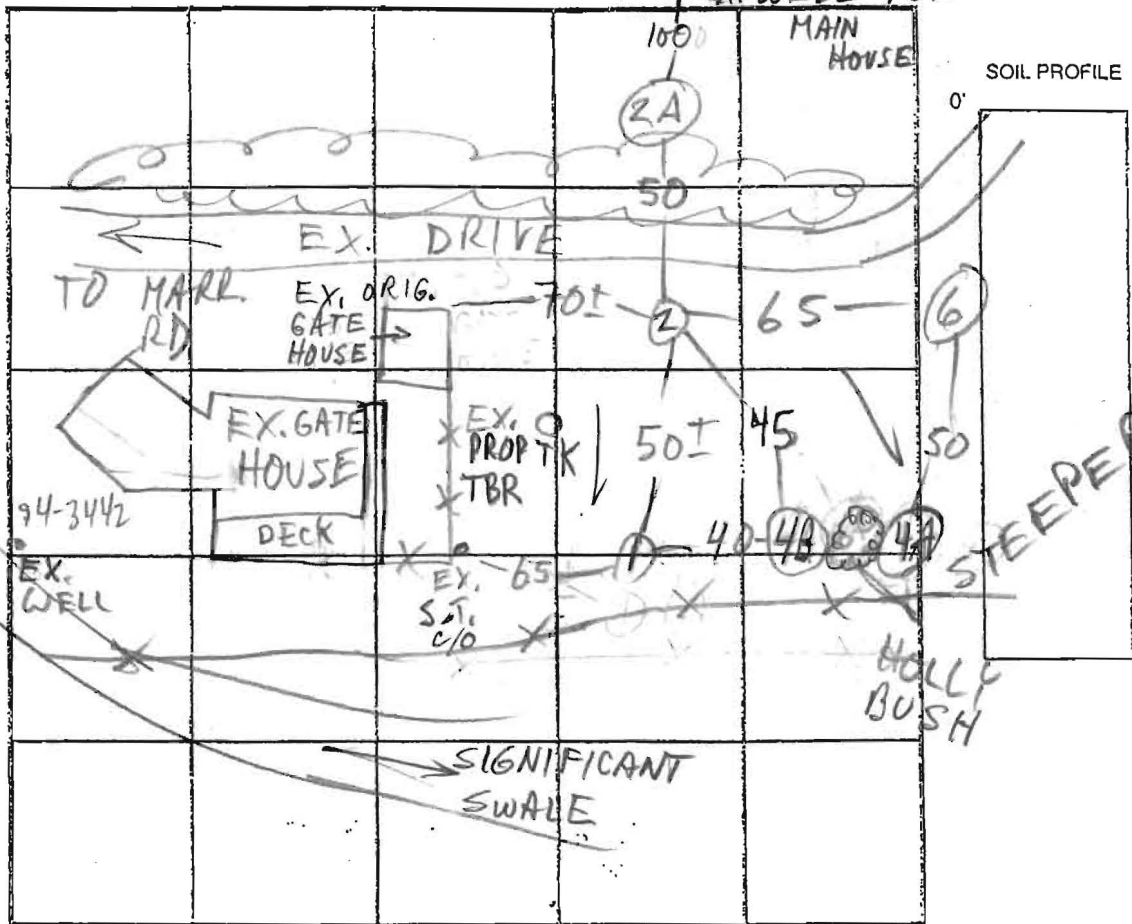 100
MAIN
HOUSE
SOIL PROFILE
0'
2A
50
EX. DRIVE
TO MARR.
RD
EX. ORIG.
GATE
HOUSE
70±
2
65
6
EX. GATE
HOUSE
DECK
EX.
PROP TK
TBR
50±
45
50
94-3442
EX.
WELL
65
EX.
S.T.
C/O
1
40
4B
4A
STEEPER
HOLLY
BUSH
SIGNIFICANT
SWALE